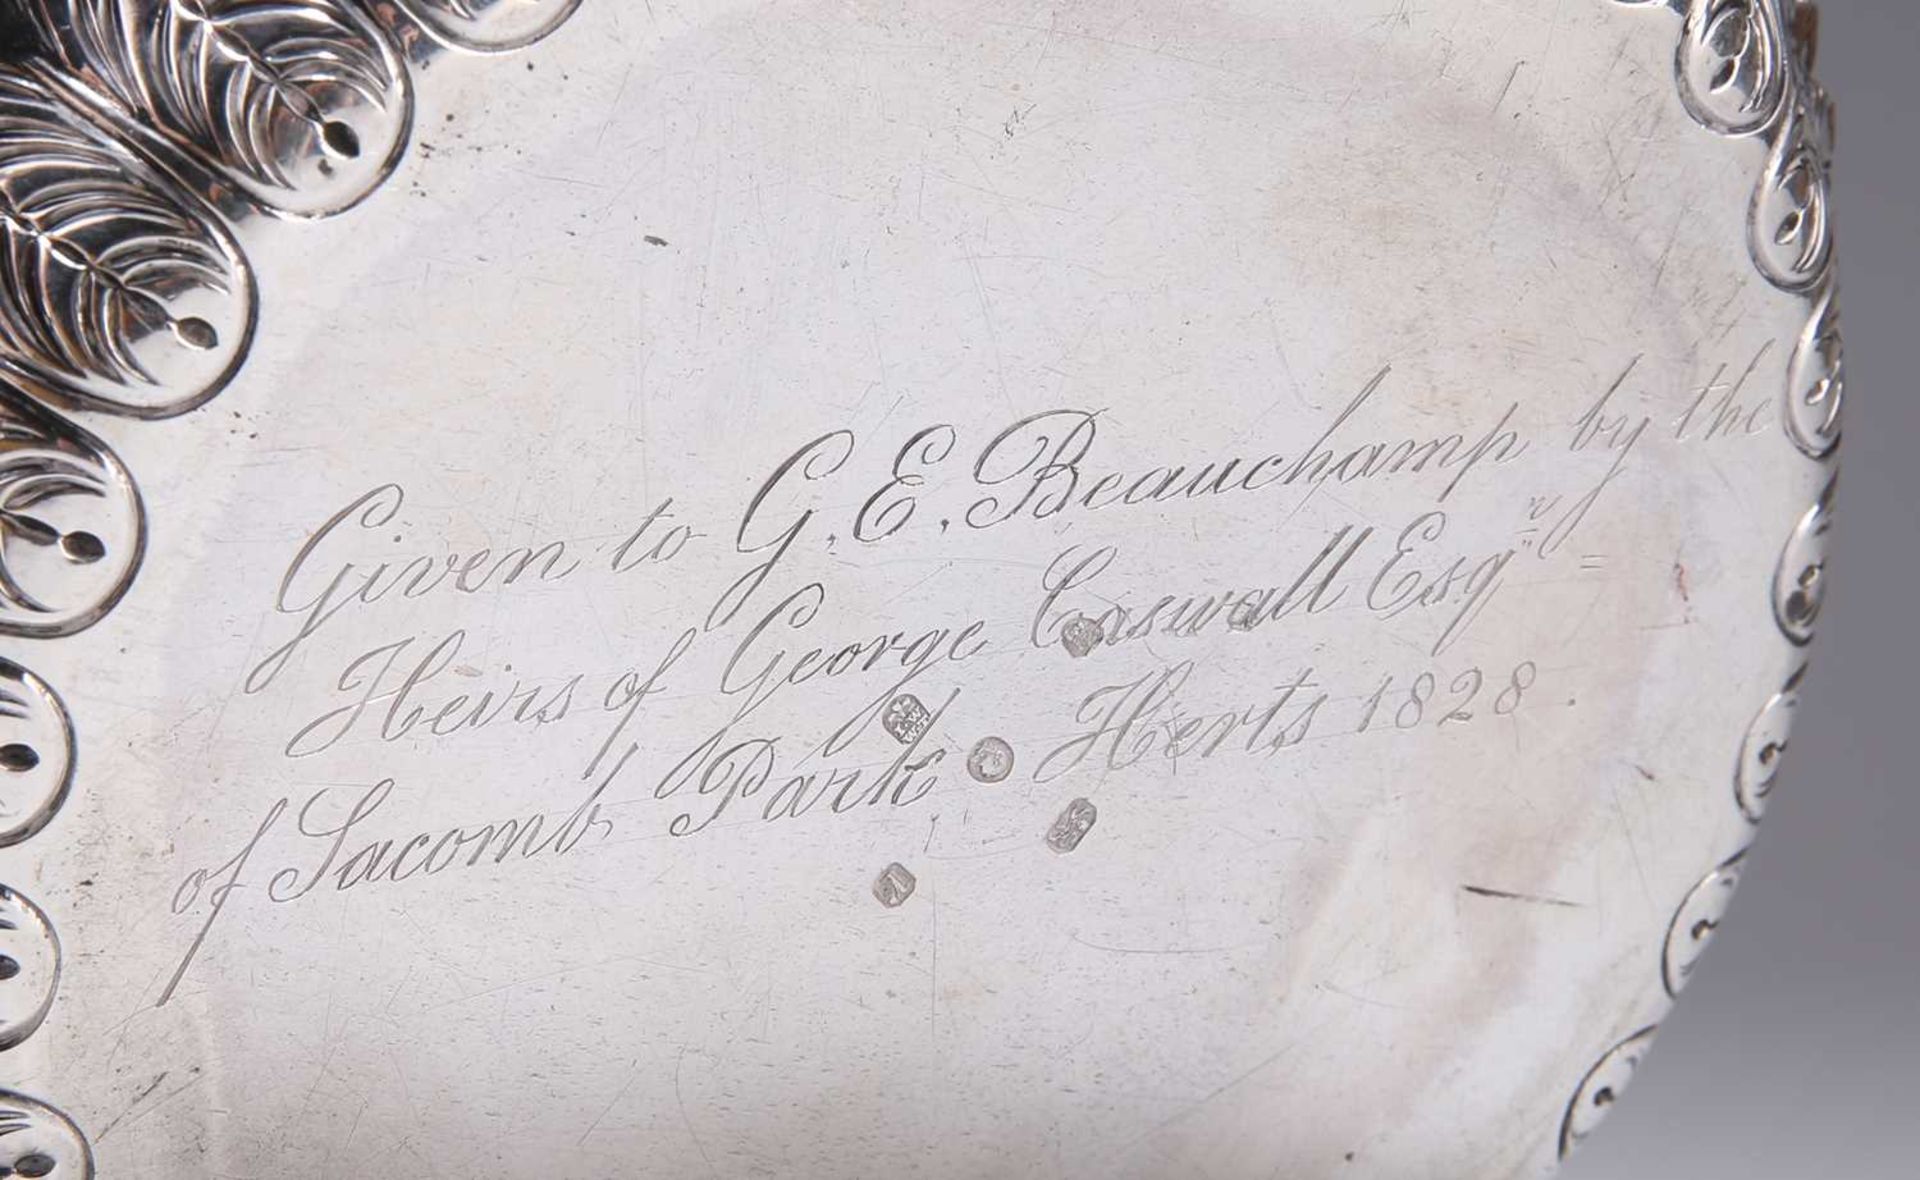 Given to G. E. Beauchamp by the
Heirs of George Caswall Esqr =
of Sacomb Park Herts 1828.